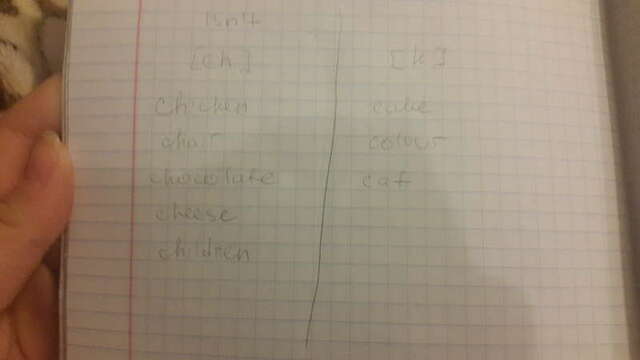 isn't
[ch] [k]
chicken cake
chair colour
chocolate cat
cheese
children